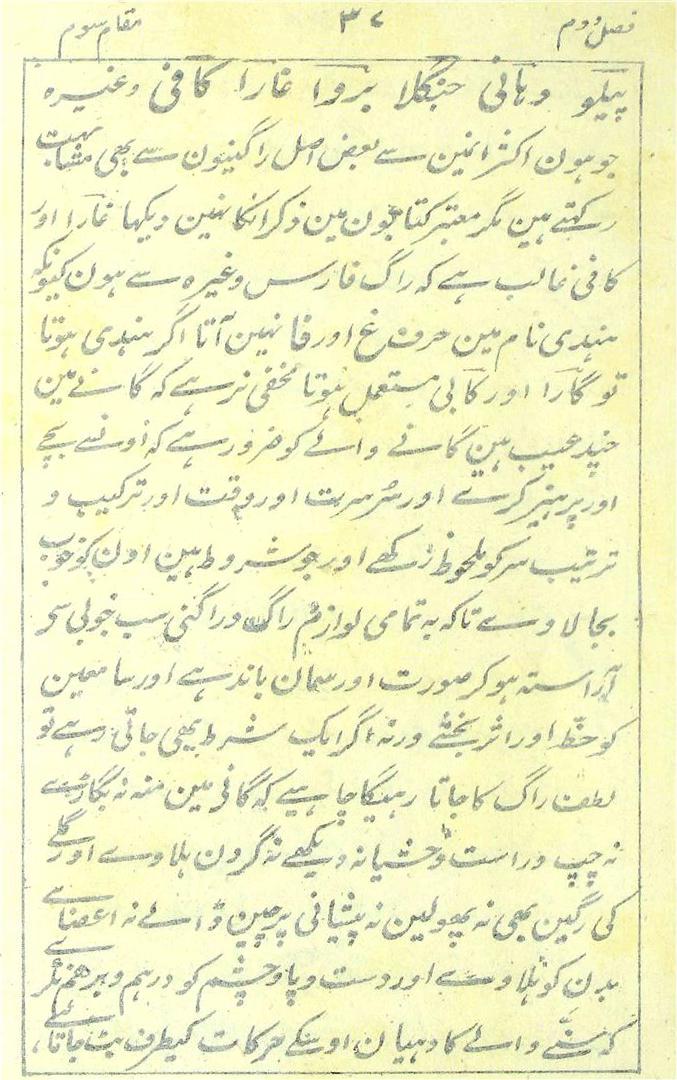 فصل دوم ۳۷ مقام سوم
پیلو وہانی جنگلا بروا غارا کافی وغیرہ
جو ہون اکثر انمین سے بعض اصل راگنیون سے بھی مشابہت
رکہتے ہین مگر معتبر کتابون مین ذکر انکا نہین دیکہا غارا اور
کافی غالب ہے کہ راگ فارس وغیرہ سے ہون کیونکہ
ہندی نام مین حرف غ اور فا نہین آتا اگر ہندی ہوتا
تو گارا اور کاپی مستعمل ہوتا مخفی نرہے کہ گانے مین
چند عیب ہین گانے والے کو ضرور ہے کہ اونسے بچے
اور پرہیز کرے اور سُر سرت اور وقت اور ترکیب و
ترتیب سر کو ملحوظ رکھے اور جو شروط ہین اون کو خوب
بجا لاوے تاکہ بہ تمامی لوازم راگ وراگنی سب خوبی سے
آراستہ ہوکر صورت اور سمان باندہے اور سامعین
کو حظّ اور اثر بخشے ورنہ اگر ایک شرط بھی جاتی رہے تو
لطف راگ کا جاتا رہیگا چاہیے کہ گانی مین منہ نہ بگاڑے
نہ چپ وراست وحشیانہ دیکھے نہ گردن ہلاوے اور گلے
کی رگین بھی نہ پھولین نہ پیشانی پر چین ڈالے نہ اعضاے
بدن کو ہلاوے اور دست وپا وچشم کو درہم وبرہم نکرے
کہ سننے والے کا دہیان اوسکے حرکات کیطرف بٹ جاتا